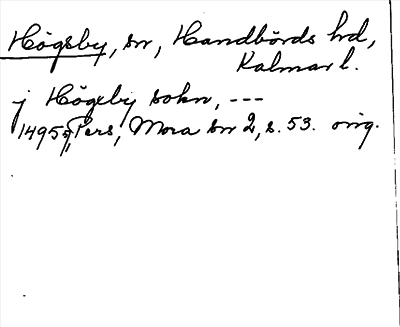 Högsby, sn, Handbörds hrd,
Kalmar l.
j Högxby sokn, ---
1495 Pers, Mora sn 2, s. 53. orig.